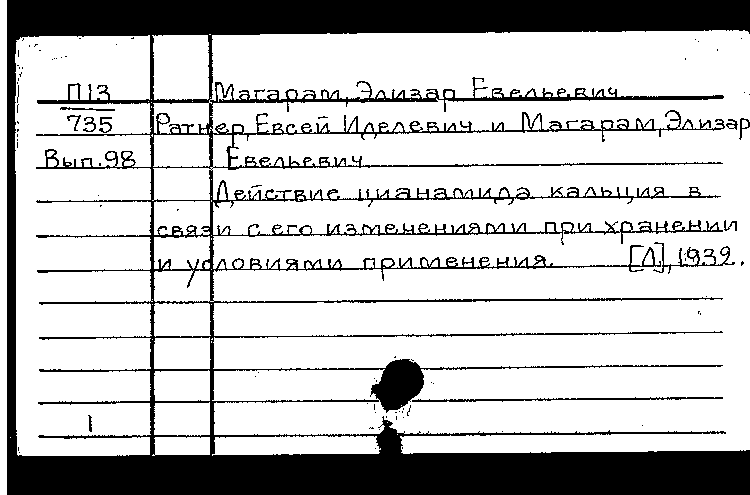 П13 Магарам, Элизар Евельевич
735 Ратнер, Евсей Иделевич и Магарам, Элизар
Вып.98 Евельевич
Действие цианамида кальция в
связи с его изменениями при хранении
и условиями применения. [Л], 1932.
1